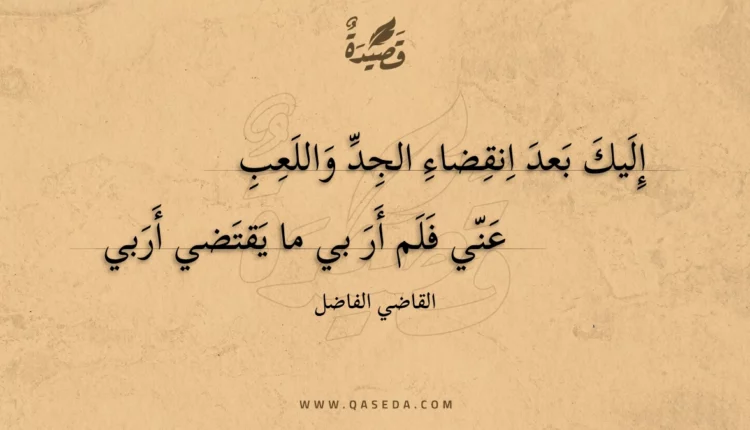 قَصِيدَةٌ
إِلَيكَ بَعدَ اِنقِضاءِ الجِدِّ وَاللَعِبِ
عَنّي فَلَم أَرَ بي ما يَقتَضي أَرَبي
القاضي الفاضل
WWW.QASEDA.COM